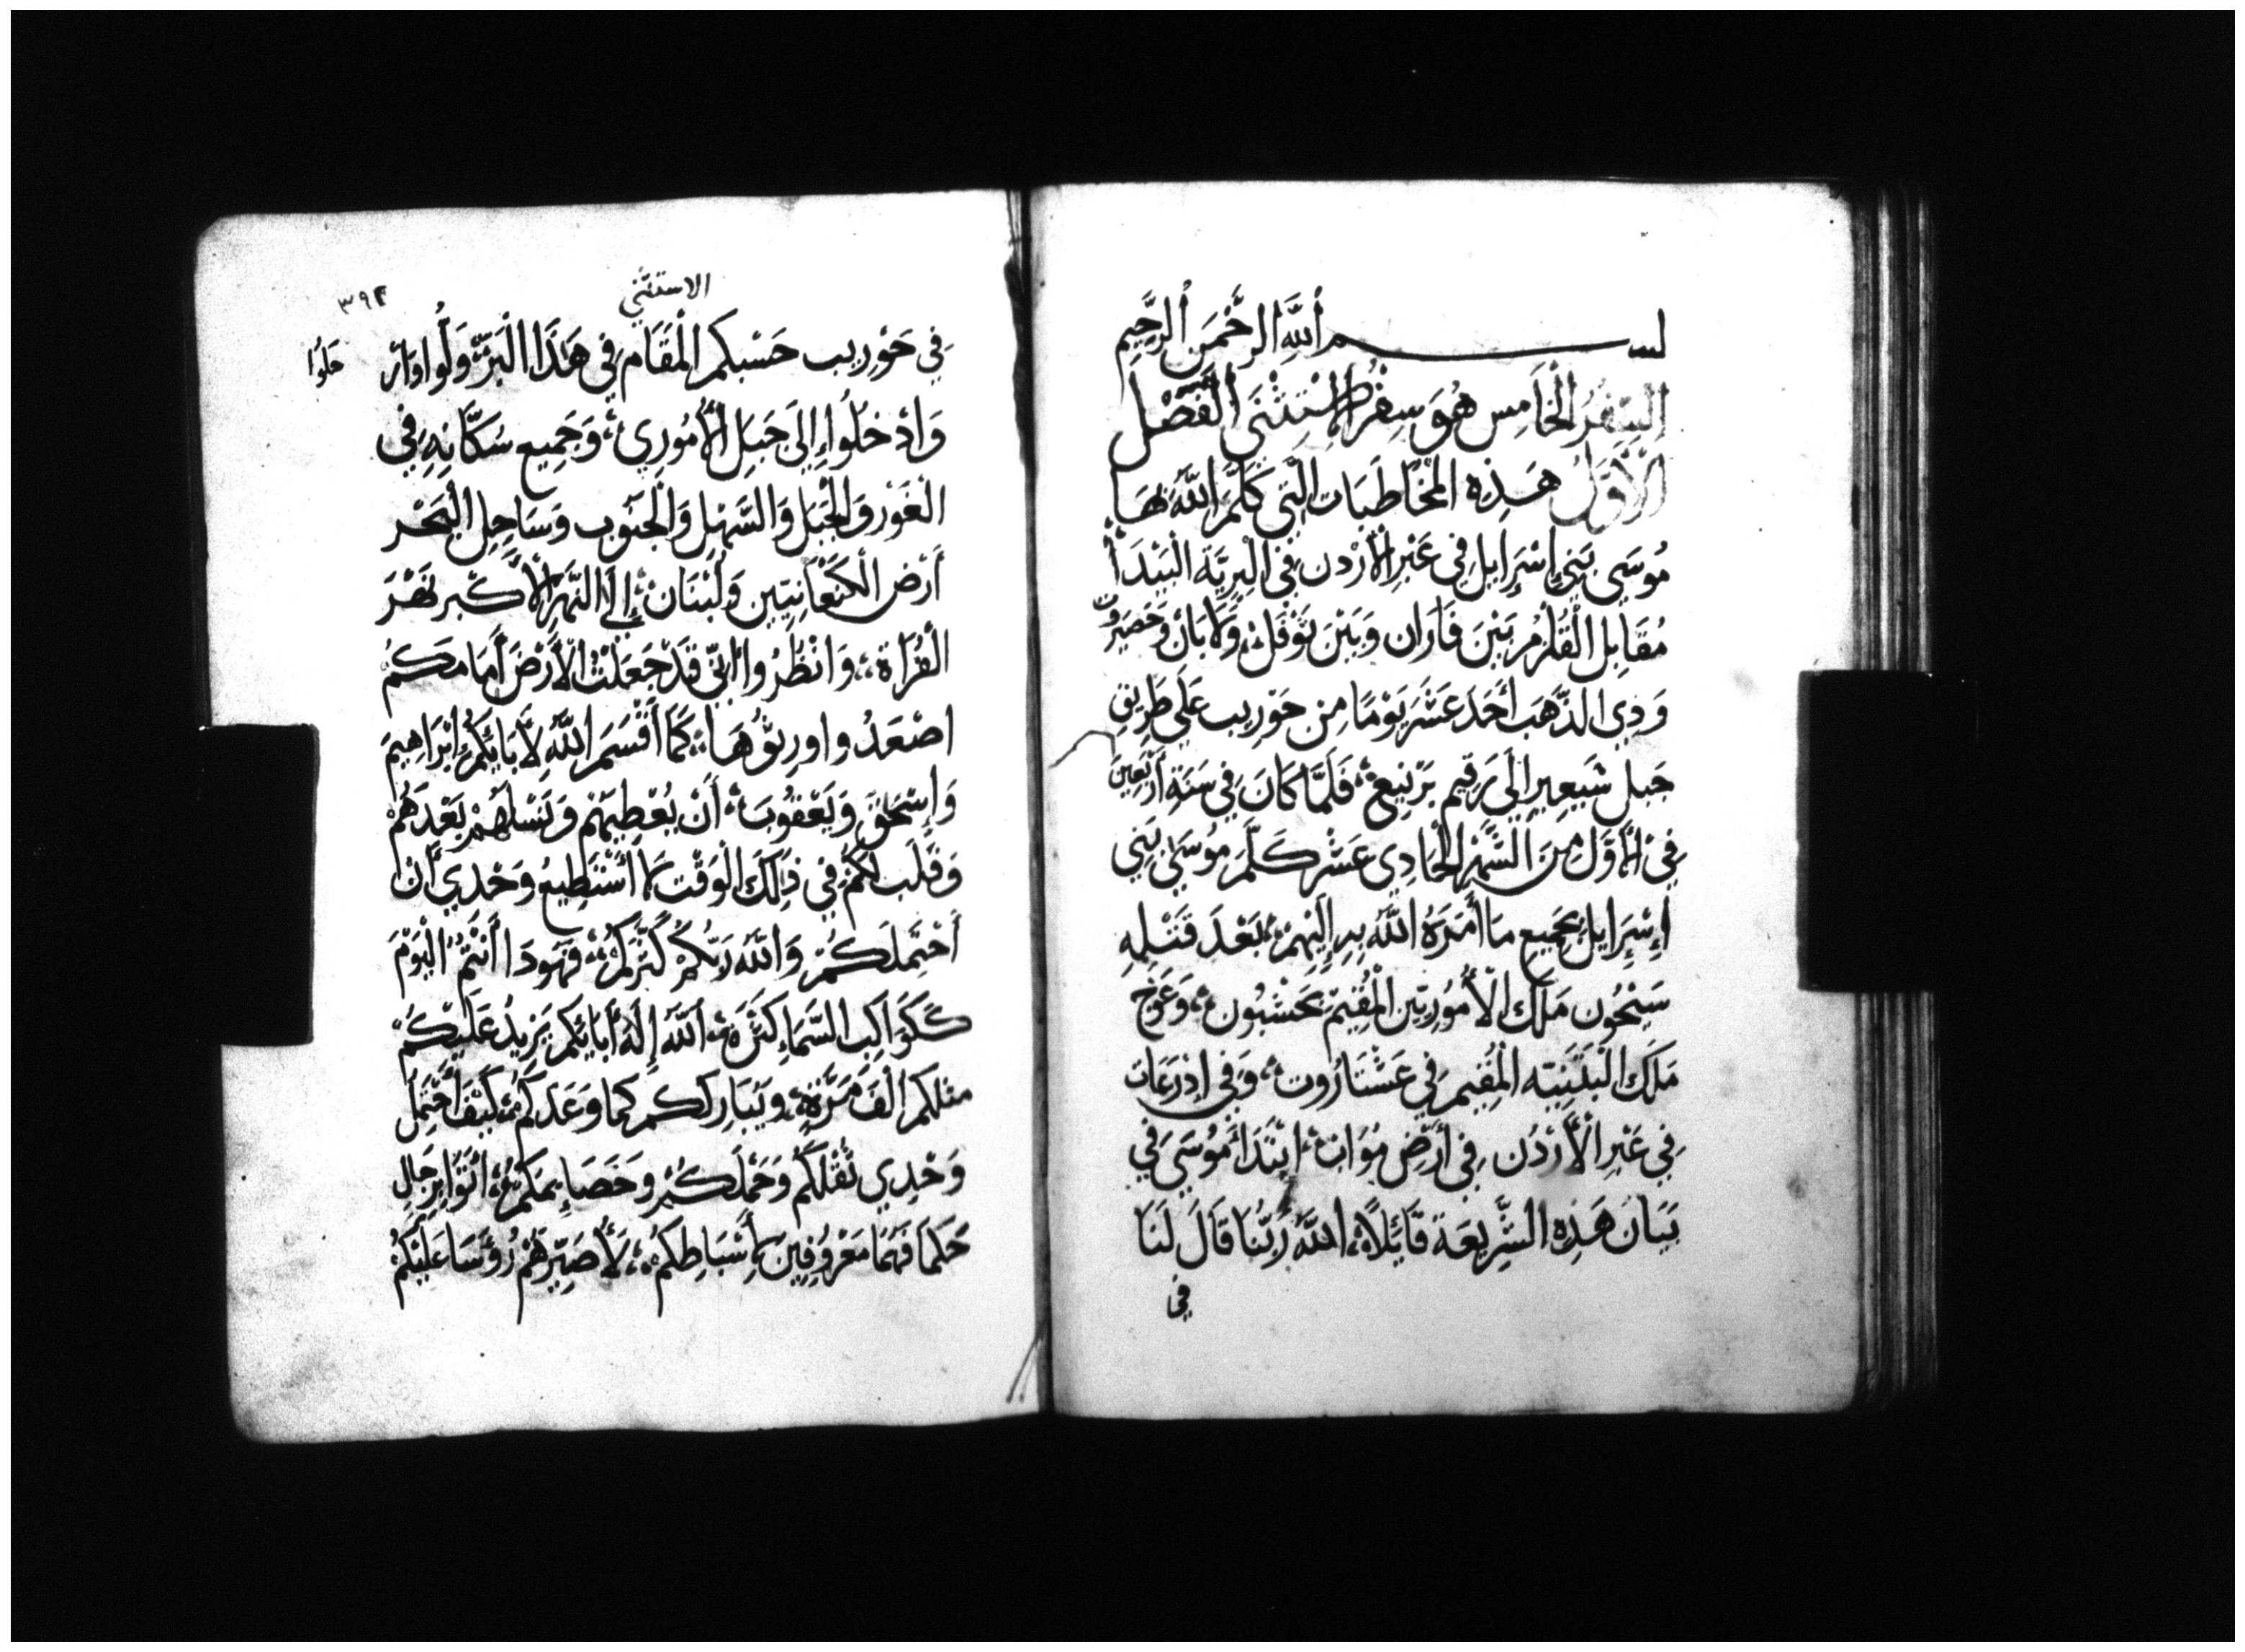 بسم اللَّهِ الرَّحْمَنِ الرَّحِيمِ
السِّفْرُ الْخَامِس هُوَ سِفْرُ الِاسْتِثْنَى الْفَصْل
الْأَوَّلُ هَذِهِ الْمُخَاطَبَات الَّتِي كَلَّمَ اللَّهُ بِهَا
مُوسَى بَنِي إِسْرَايِل فِي عَبْرِ الْأُرْدن فِي الْبَرِيَّة الْبَيْدَأ
مُقَابِل الْقُلْزُمُ بَيْنَ فَارَان وَبَيْنَ تَوْفَلْ، وَلَابَانْ وَحَصَيْرُوت
وَذِي الذَّهَب أَحَدَ عَشَرَ يَوْمًا مِن حَوْرِيب عَلَى طَرِيقِ
جَبل شَبِعِير إِلَى رَقِيم بَرْنِيعْ، فَلَمَّا كَانَ فِي سَنَةِ أَرْبَعِينَ
فِي الْأَوَّل مِنَ الشَّهْرِ الْحَادِي عَشْر كَلَّمَ مُوسَى بَنِي
إِسْرَايِل بِجَمِيعِ مَا أَمَرَهُ اللَّهُ بِهِ إِلَيْهِمْ، بَعْدَ قَتْلِهِ
سَيْحُون مَلَك الْأَمُورِيِّين الْمُقِيمْ بِحَشْبُون، وَعَوْج
مَلَك الْبَثَنِيَّه الْمُقِيم فِي عَشْتَارُوت، وَفِي اذْرَعَات
فِي عَبْرِ الْأُرْدُن فِي أَرْضِ مُوَابْ، ابْتَدَأَ مُوسَى فِي
بَيَانَ هَذِهِ الشَّرِيعَة قَائِلًا، اللَّهُ رَبُّنَا قَالَ لَنَا
فِي
الاستثني
٣٩٤
فِي حَوْرِيب حَسْبكم الْمُقَام فِي هَذَا الْبَرِّ، وَلُّوا وَارْ
حَلُوا
وَادْخُلُوا إِلَى جَبَلِ الْأَمُورِي، وَجَمِيع سُكَّانِهِ فِي
الْغَوْر وَالْجَبَل وَالسَّهْلِ وَالْجَنُوب وَسَاحِلِ الْبَحْر
أَرْض الْكَنْعَانِيِّين وَلُبْنَانْ، إِلَى النَّهْرِ الْأَكْبَر نَهْرَ
الْفُرَاة، وَانْظُرُوا انِّي قَدْ جَعَلْتُ الْأَرْضَ أَمَامَكُمْ
اصْعَدُوا وارِثُوهَا، كَمَا أَقْسَمَ اللَّهُ لِأَبَائِكُمْ إِبْرَاهِيمَ
وَإِسْحَقَ وَيَعْقُوبَ، أَنْ يُعْطِيهُمْ وَنَسْلَهُمْ بَعْدَهُمْ
وَقُلت لَكُمْ فِي ذَلِكَ الْوَقْت لَا أَسْتَطِيع وَحْدِي أَنْ
أَحْتَمِلَكُمْ وَاللَّهُ رَبُّكُمْ كَثَّرَكُمْ، فَهُوذَا أَنْتُمُ الْيَوْمَ
كَكَوَاكِبِ السَّمَاءِ كَثْرَةً، اللَّهُ إِلَهُ أَبَائِكم يَزِيدُ عَلَيْكُمْ
مثلكم الْفَ مَرَّةٍ، وَيُبَارِككم كما وَعَدَكُمْ، كَيْفَ أَحْتَمِلَ
وَحْدِي ثُقْلَكُم وَحَمْلَكُمْ وَخَصَايِمَكُمْ، ائْتُوا بِرِجَالِ
حُكَمَا فُهَمَا مَعْرُوفِين لِأَسْبَاطِكُمْ، لِأُصَيِّرَهُمْ رُؤَسَا عَلَيْكُمْ